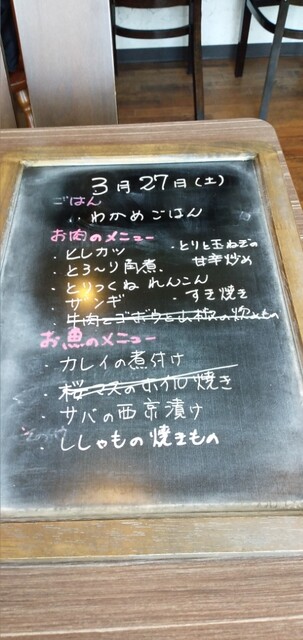 3月27日(土)
ごはん
・わかめごはん
お肉のメニュー
・ヒレカツ
・とりと玉ねぎの甘辛炒め
・とろ〜り角煮
・とりつくね れんこん
・ザンギ
・すき焼き
・牛肉とゴボウと山椒の炊きもの
お魚のメニュー
・カレイの煮付け
・桜マスのホイル焼き
・サバの西京漬け
・ししゃもの焼きもの